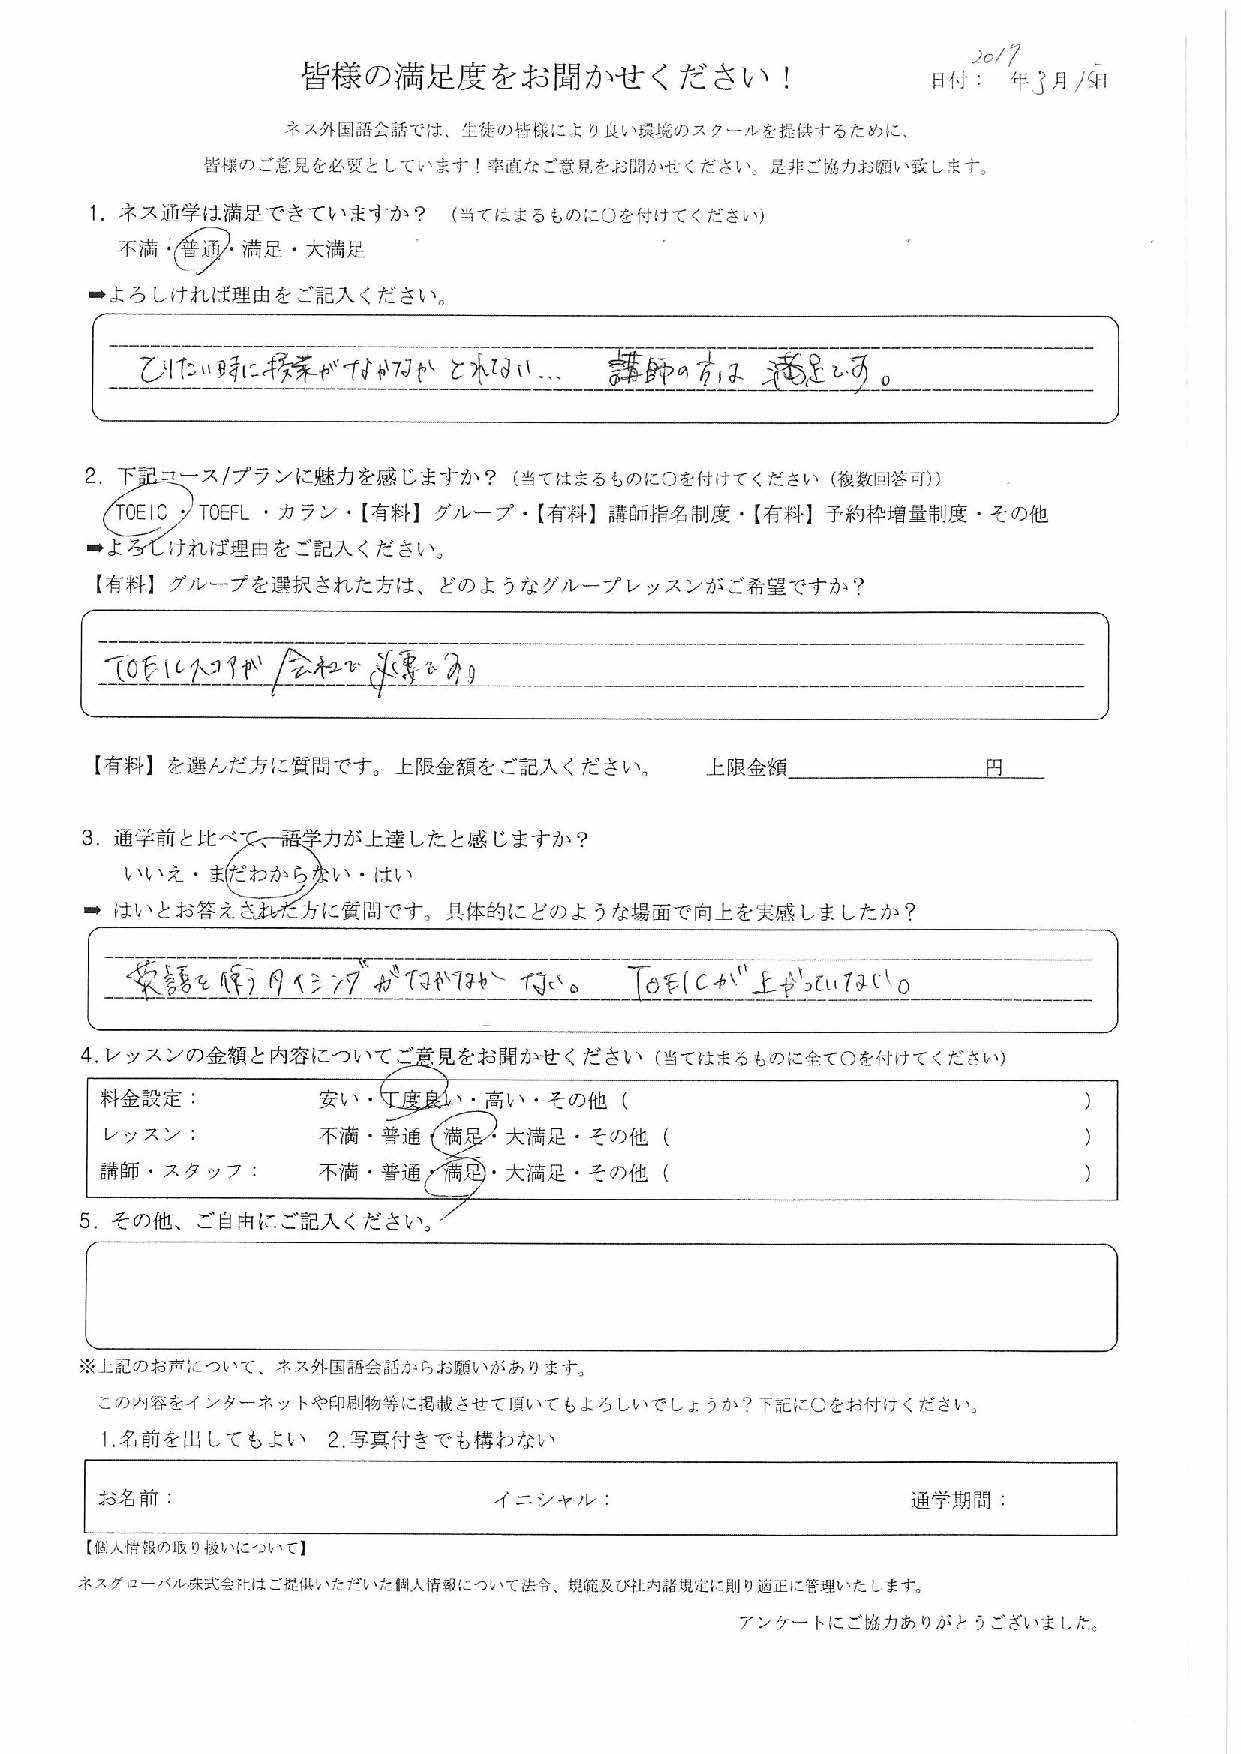 皆様の満足度をお聞かせください！
日付： 2017年3月15日
ネス外国語会話では、生徒の皆様により良い環境のスクールを提供するために、
皆様のご意見を必要としています！率直なご意見をお聞かせください。是非ご協力お願い致します。
1. ネス通学は満足できていますか？ （当てはまるものに〇を付けてください）
不満・普通・満足・大満足
➡よろしければ理由をご記入ください。
とりたい時に授業がなかなかとれない… 講師の方は満足です。
2. 下記コース/プランに魅力を感じますか？（当てはまるものに〇を付けてください（複数回答可））
TOEIC ・ TOEFL ・カラン・【有料】グループ・【有料】講師指名制度・【有料】予約枠増量制度・その他
➡よろしければ理由をご記入ください。
【有料】グループを選択された方は、どのようなグループレッスンがご希望ですか？
TOEICスコアが会社で必要です。
【有料】を選んだ方に質問です。上限金額をご記入ください。 上限金額 円
3. 通学前と比べて、語学力が上達したと感じますか？
いいえ・まだわからない・はい
➡ はいとお答えされた方に質問です。具体的にどのような場面で向上を実感しましたか？
英語を使うタイミングがなかなかない。 TOEICが上がっていない。
4.レッスンの金額と内容についてご意見をお聞かせください（当てはまるものに全て〇を付けてください）
料金設定： 安い・丁度良い・高い・その他（ ）
レッスン： 不満・普通・満足・大満足・その他（ ）
講師・スタッフ： 不満・普通・満足・大満足・その他（ ）
5. その他、ご自由にご記入ください。
※上記のお声について、ネス外国語会話からお願いがあります。
この内容をインターネットや印刷物等に掲載させて頂いてもよろしいでしょうか？下記に〇をお付けください。
1.名前を出してもよい 2.写真付きでも構わない
お名前： イニシャル： 通学期間：
【個人情報の取り扱いについて】
ネスグローバル株式会社はご提供いただいた個人情報について法令、規範及び社内諸規定に則り適正に管理いたします。
アンケートにご協力ありがとうございました。